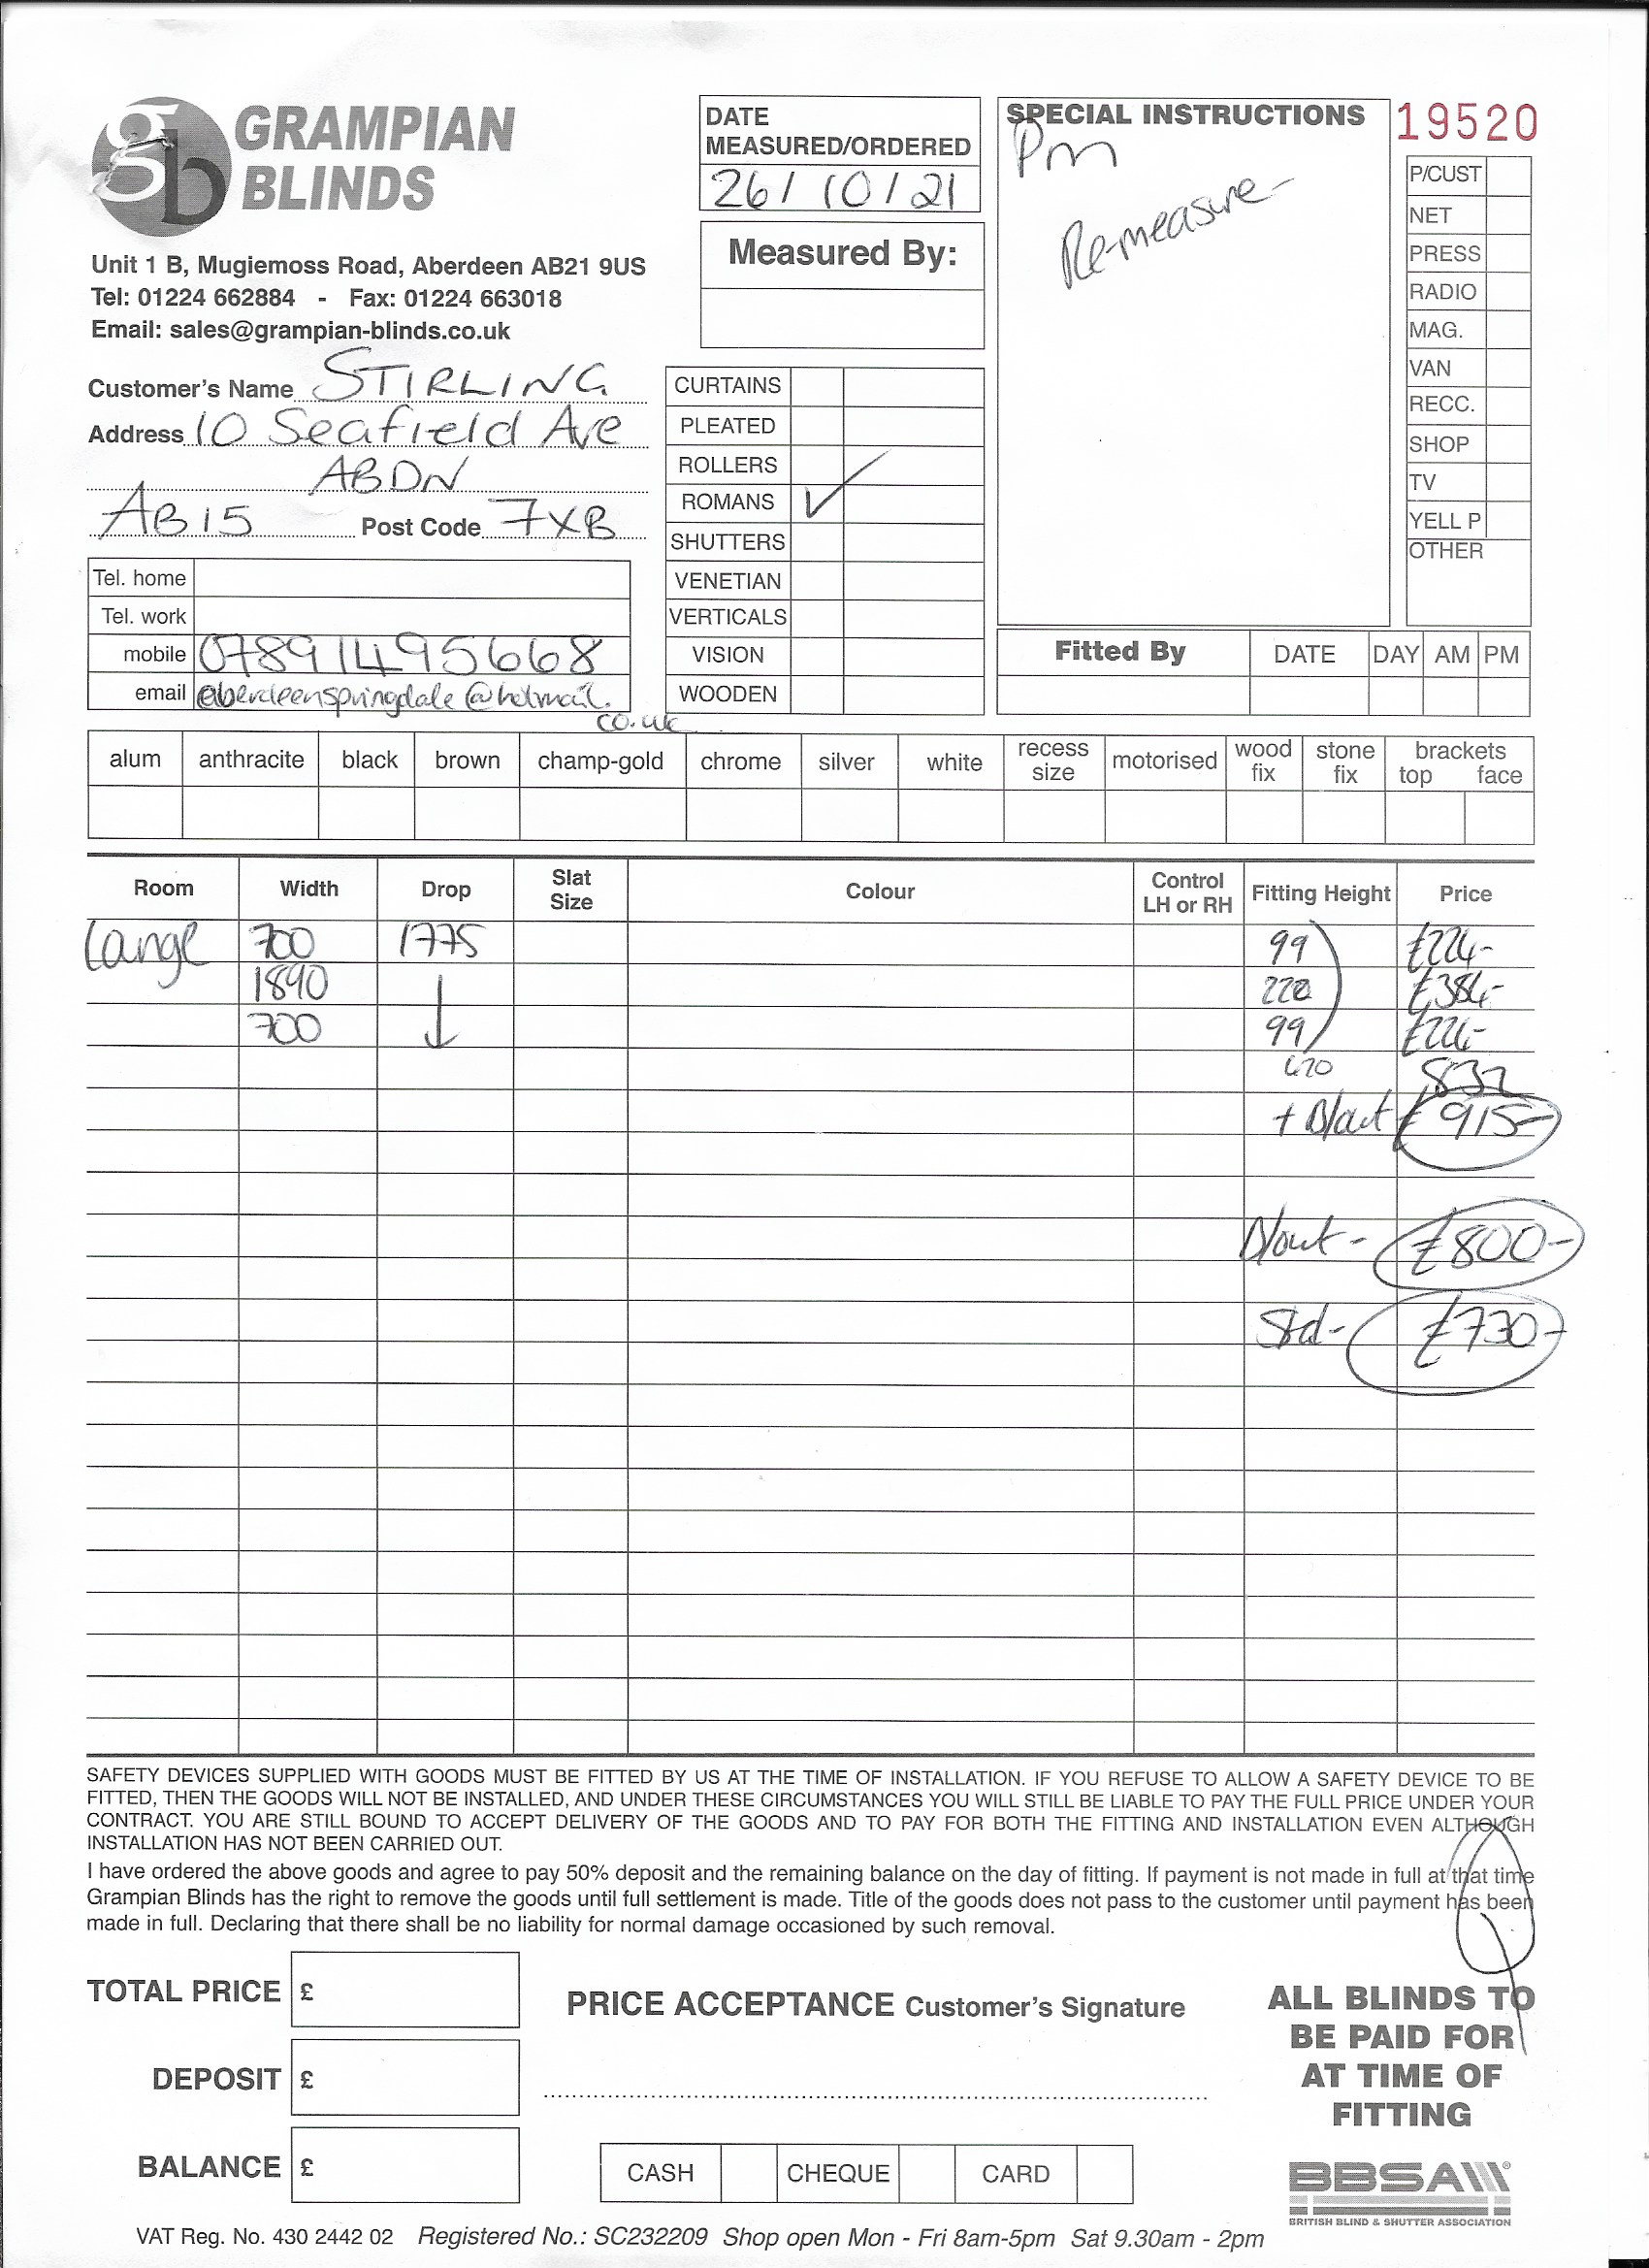 gb GRAMPIAN
BLINDS
Unit 1 B, Mugiemoss Road, Aberdeen AB21 9US
Tel: 01224 662884 - Fax: 01224 663018
Email: sales@grampian-blinds.co.uk
DATE
MEASURED/ORDERED
26/10/21
Measured By:
SPECIAL INSTRUCTIONS
Pm
Re-measure-
19520
P/CUST
NET
PRESS
RADIO
MAG.
VAN
RECC.
SHOP
TV
YELL P
OTHER
Customer's Name STIRLING
Address 10 Seafield Ave
ABDN
AB15 Post Code 7XB
Tel. home
Tel. work
mobile 07891495668
email aberdeenspringdale@hotmail.
co.uk
CURTAINS
PLEATED
ROLLERS
ROMANS ✓
SHUTTERS
VENETIAN
VERTICALS
VISION
WOODEN
Fitted By DATE DAY AM PM
alum anthracite black brown champ-gold chrome silver white recess size motorised wood fix stone fix brackets top face
Room Width Drop Slat Size Colour Control LH or RH Fitting Height Price
700 1775 99 £224-
1890 220 £384-
700 99 £224-
832
+ B/out £915-
B/out - £800-
Std - £730-
SAFETY DEVICES SUPPLIED WITH GOODS MUST BE FITTED BY US AT THE TIME OF INSTALLATION. IF YOU REFUSE TO ALLOW A SAFETY DEVICE TO BE
FITTED, THEN THE GOODS WILL NOT BE INSTALLED, AND UNDER THESE CIRCUMSTANCES YOU WILL STILL BE LIABLE TO PAY THE FULL PRICE UNDER YOUR
CONTRACT. YOU ARE STILL BOUND TO ACCEPT DELIVERY OF THE GOODS AND TO PAY FOR BOTH THE FITTING AND INSTALLATION EVEN ALTHOUGH
INSTALLATION HAS NOT BEEN CARRIED OUT.
I have ordered the above goods and agree to pay 50% deposit and the remaining balance on the day of fitting. If payment is not made in full at that time
Grampian Blinds has the right to remove the goods until full settlement is made. Title of the goods does not pass to the customer until payment has been
made in full. Declaring that there shall be no liability for normal damage occasioned by such removal.
TOTAL PRICE £
DEPOSIT £
BALANCE £
PRICE ACCEPTANCE Customer's Signature
CASH CHEQUE CARD
ALL BLINDS TO
BE PAID FOR
AT TIME OF
FITTING
BBSA®
BRITISH BLIND & SHUTTER ASSOCIATION
VAT Reg. No. 430 2442 02 Registered No.: SC232209 Shop open Mon - Fri 8am-5pm Sat 9.30am - 2pm